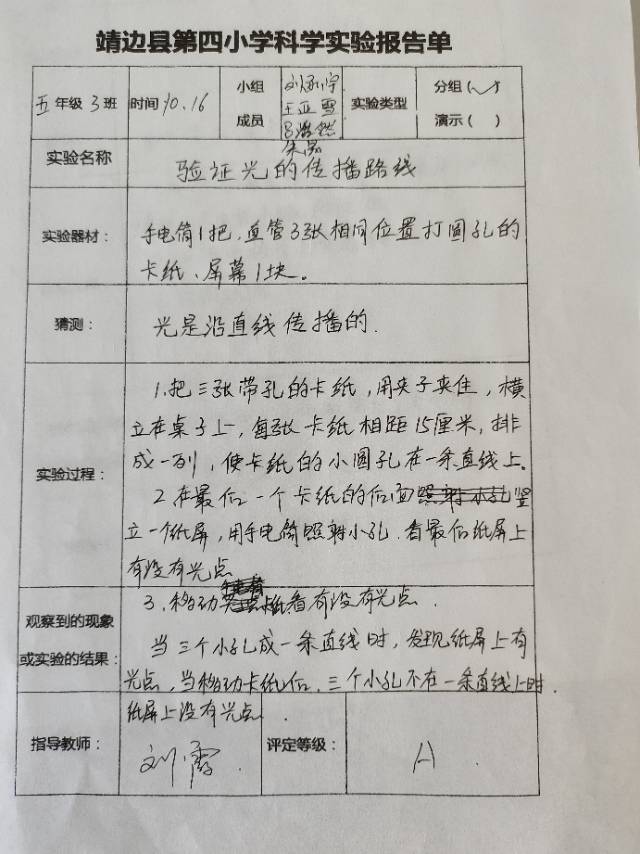 靖边县第四小学科学实验报告单
五年级 3班 时间 10.16 小组成员 王亚雪 实验类型 分组(✓) 演示( )
实验名称 验证光的传播路线
实验器材： 手电筒1把、直管3张相同位置打圆孔的
卡纸、屏幕1块。
猜测： 光是沿直线传播的.
实验过程： 1.把三张带孔的卡纸,用夹子夹住,横
立在桌子上,每张卡纸相距15厘米,排
成一列,使卡纸的小圆孔在一条直线上。
2.在最后一个卡纸的后面竖
立一个纸屏,用手电筒照射小孔.看最后纸屏上
有没有光点
3.移动卡纸看有没有光点.
观察到的现象或实验的结果： 当三个小孔成一条直线时,发现纸屏上有
光点,当移动卡纸后,三个小孔不在一条直线上时.
纸屏上没有光点.
指导教师： 刘霞. 评定等级： A.